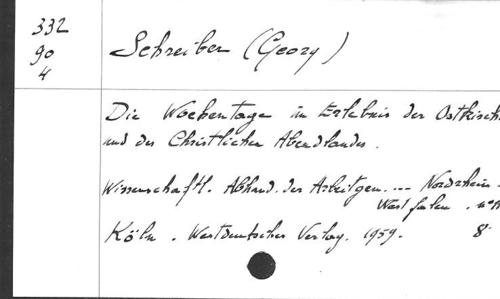 332
90
4
Schreiber (Georg)
Die Wochentage im Erlebnis der Ostkirche
und des Christlichen Abendlandes.
Wissenschaftl. Abhand. der Arbeitgem. ... Nordrhein-
Westfalen.
Köln. Westdeutscher Verlag. 1959. 8°